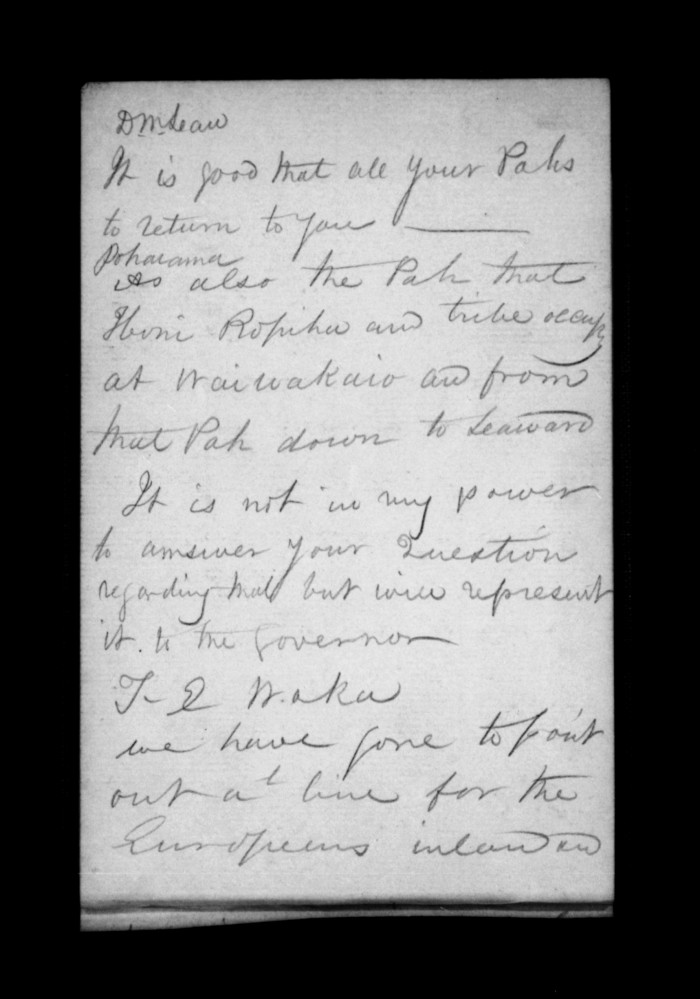 D McLean
It is good that all your Pahs
to return to you ———
Poharama
As also the Pah that
Ihoni Ropiha and tribe occupy
at Waiwakaio and from
that Pah down to Seaward
It is not in my power
to answer your Question
regarding that but will represent
it. to the Governor
T- E Waka
we have gone to point
out a line for the
Europeans inland and